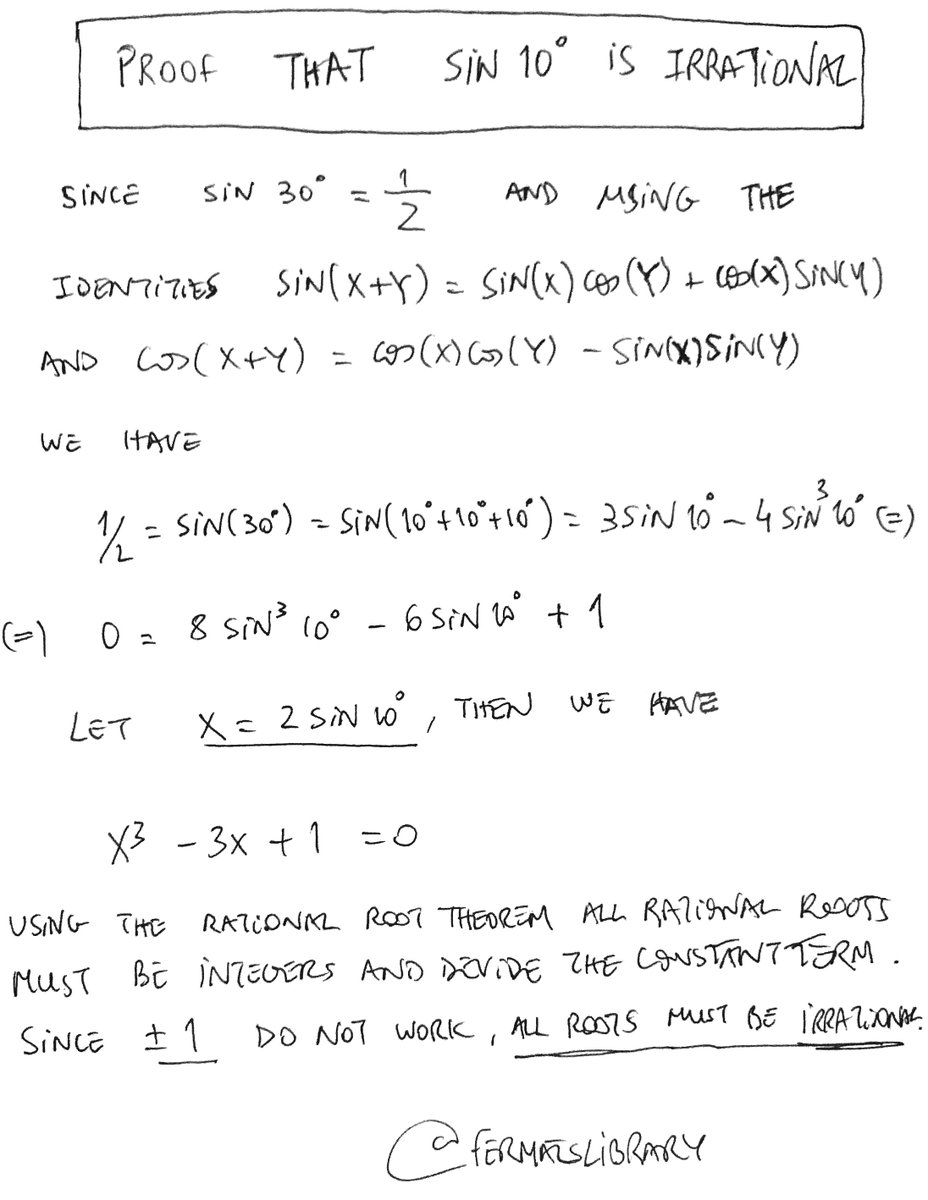 PROOF THAT SIN 10° IS IRRATIONAL
SINCE SIN 30° = 1/2 AND USING THE
IDENTITIES SIN(X+Y) = SIN(X) COS(Y) + COS(X) SIN(Y)
AND COS(X+Y) = COS(X) COS(Y) - SIN(X) SIN(Y)
WE HAVE
1/2 = SIN(30°) = SIN(10°+10°+10°) = 3 SIN 10° - 4 SIN³ 10° (=)
(=) 0 = 8 SIN³ 10° - 6 SIN 10° + 1
LET X = 2 SIN 10°, THEN WE HAVE
X³ - 3X + 1 = 0
USING THE RATIONAL ROOT THEOREM ALL RATIONAL ROOOTS
MUST BE INTEGERS AND DIVIDE THE CONSTANT TERM.
SINCE ± 1 DO NOT WORK, ALL ROOTS MUST BE IRRATIONAL.
@FERMATSLIBRARY